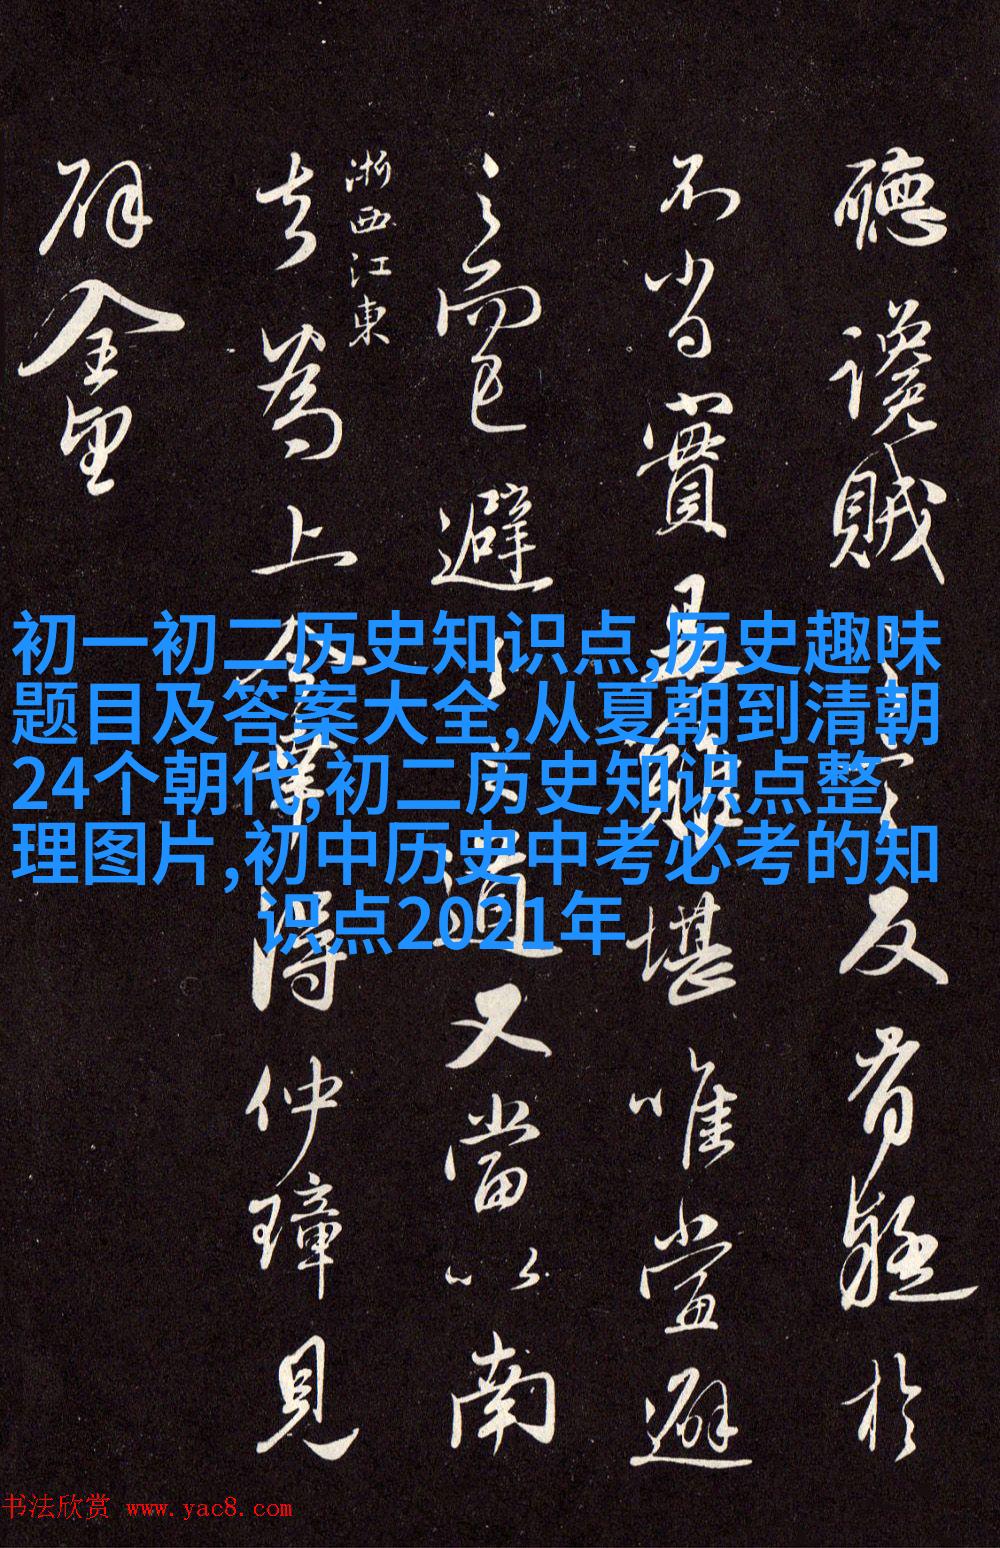 聽讒賊
反有疑於
不省實
堪唯當避
之而已避
道又當以南
浙西江東
去為上
得仲璋見
辟金里
初一初二历史知识点,历史趣味
题目及答案大全,从夏朝到清朝
24个朝代,初二历史知识点整
理图片,初中历史中考必考的知
识点2021年
书法欣赏 www.yac8.com